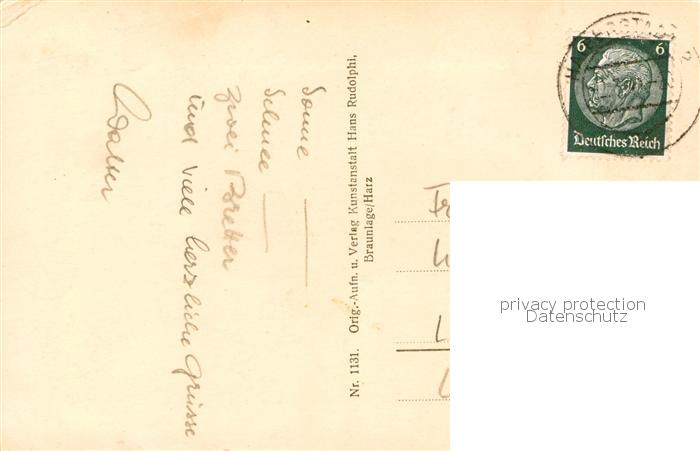 Sonne —
Schnee —
zwei Bretter
und viele herzliche Grüsse
Walter
Nr. 1131. Orig.-Aufn. u. Verlag Kunstanstalt Hans Rudolphi,
Braunlage/Harz
6 6
Deutsches Reich
privacy protection
Datenschutz